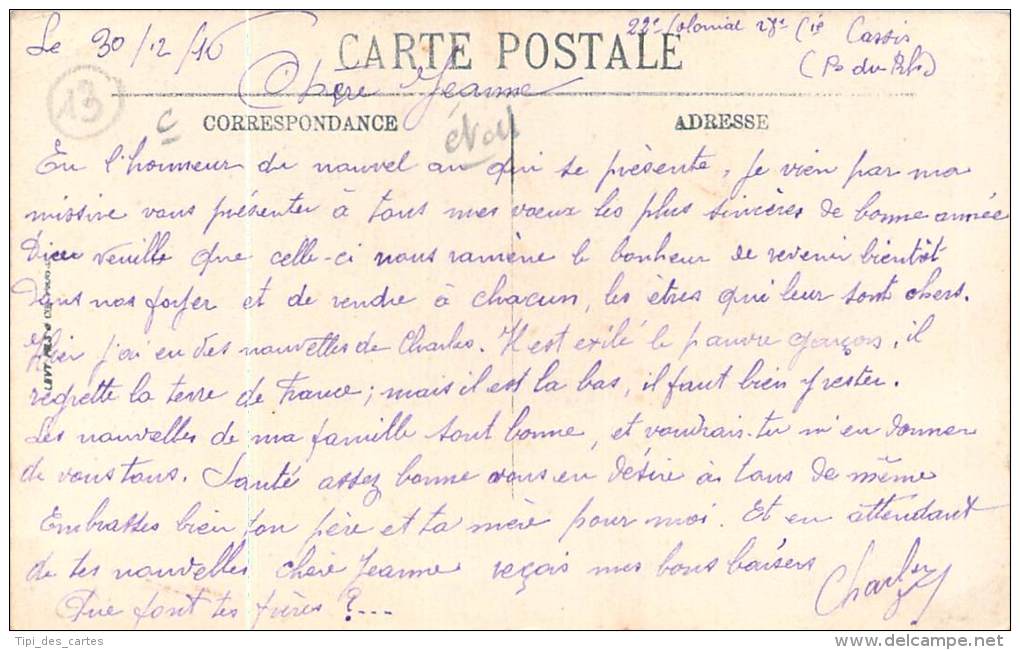 Le 30/12/16
22e Colonial 28e Cie Cassis
CARTE POSTALE
(B. du Rh.)
13
Chère Jeanne
c
CORRESPONDANCE
ADRESSE
En l'honneur du nouvel an qui se présente, je vien par ma
missive vous présenter à tous mes voeux les plus sincères de bonne année
Dieu veuille que celle-ci nous ramène le bonheur de revenir bientôt
dans nos foyer et de rendre à chacun, les êtres qui leur sont chers.
Hier j'ai eu des nouvelles de Charles. Il est exilé le pauvre garçon, il
regrette la terre de France; mais il est la bas, il faut bien y rester.
Les nouvelles de ma famille sont bonne, et voudrais-tu m'en donner
de vous tous. Santé assez bonne vous en désire à tous de même
Embrasses bien ton père et ta mère pour moi. Et en attendant
de tes nouvelles chère Jeanne reçois mes bons baisers
Que font tes frères?...
Charley
Tipi_des_cartes
delcampe.net